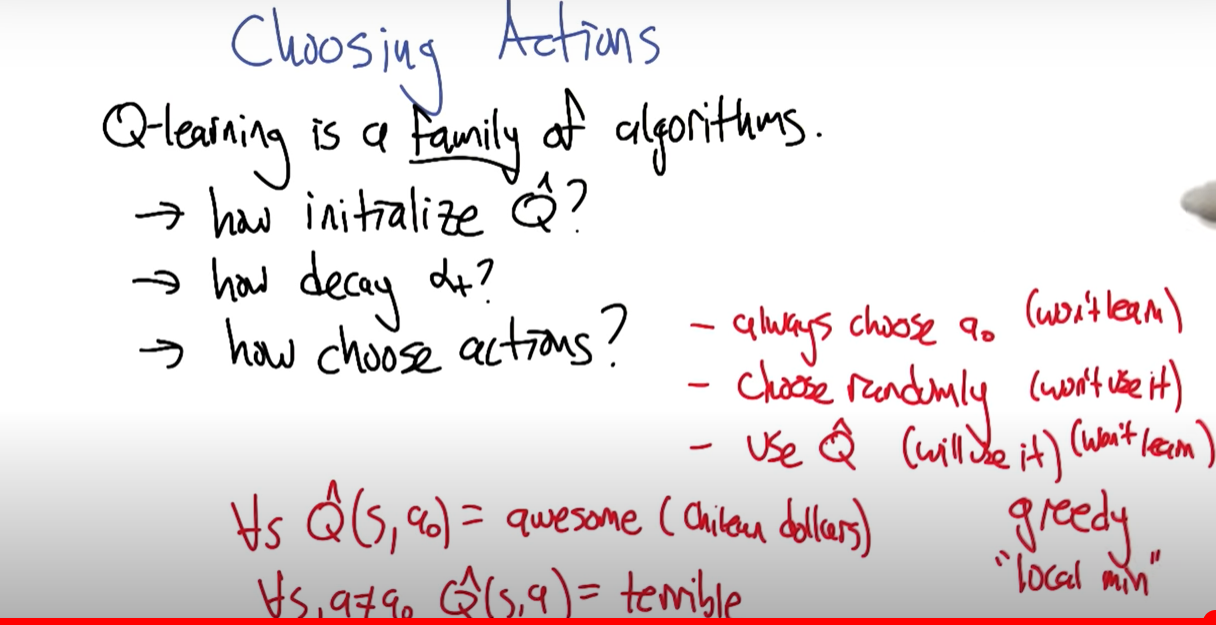 Choosing Actions
Q-learning is a family of algorithms.
→ how initialize Q̂?
→ how decay αt?
→ how choose actions?
- always choose a₀ (won't learn)
- choose randomly (won't use it)
- use Q̂ (will use it) (won't learn)
∀s Q̂(s, a₀) = awesome (Chilean dollars)
greedy
"local min"
∀s, a≠a₀ Q̂(s,a) = terrible